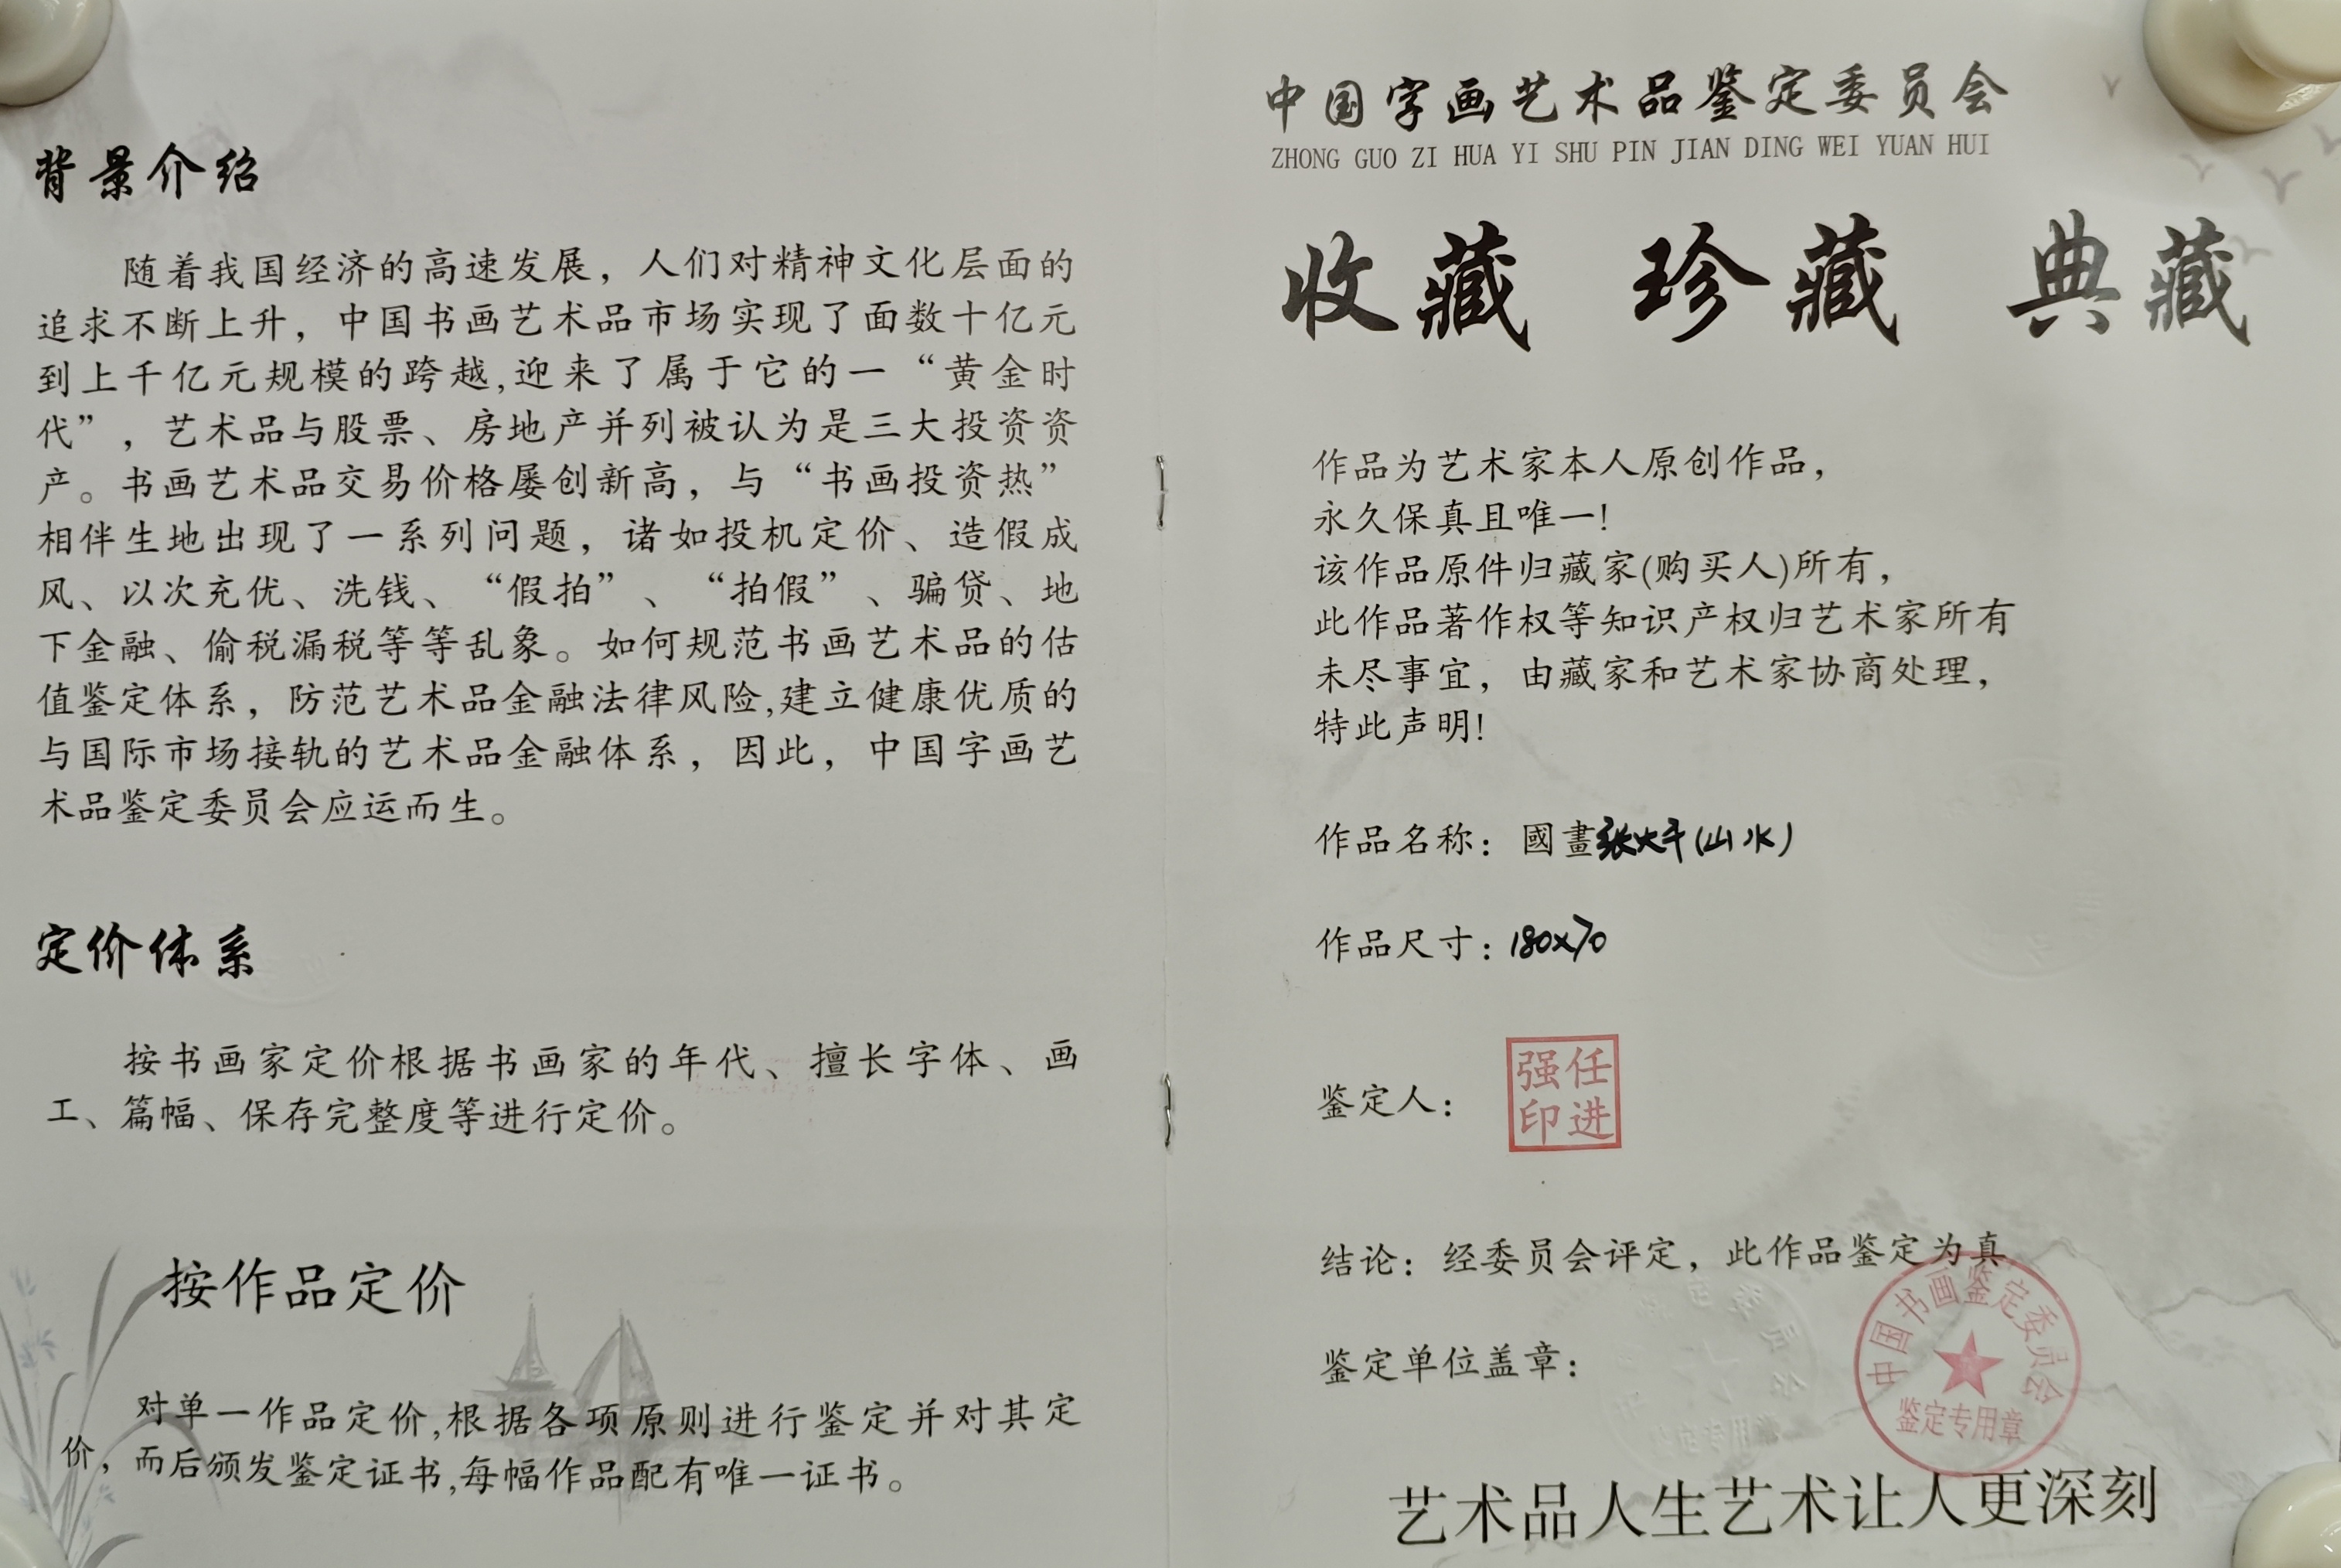 背景介绍
随着我国经济的高速发展，人们对精神文化层面的
追求不断上升，中国书画艺术品市场实现了面数十亿元
到上千亿元规模的跨越,迎来了属于它的一“黄金时
代”，艺术品与股票、房地产并列被认为是三大投资资
产。书画艺术品交易价格屡创新高，与“书画投资热”
相伴生地出现了一系列问题，诸如投机定价、造假成
风、以次充优、洗钱、“假拍”、“拍假”、骗贷、地
下金融、偷税漏税等等乱象。如何规范书画艺术品的估
值鉴定体系，防范艺术品金融法律风险,建立健康优质的
与国际市场接轨的艺术品金融体系，因此，中国字画艺
术品鉴定委员会应运而生。
定价体系
按书画家定价根据书画家的年代、擅长字体、画
工、篇幅、保存完整度等进行定价。
按作品定价
对单一作品定价,根据各项原则进行鉴定并对其定
价，而后颁发鉴定证书,每幅作品配有唯一证书。
中国字画艺术品鉴定委员会
ZHONG GUO ZI HUA YI SHU PIN JIAN DING WEI YUAN HUI
收藏 珍藏 典藏
作品为艺术家本人原创作品，
永久保真且唯一!
该作品原件归藏家(购买人)所有，
此作品著作权等知识产权归艺术家所有
未尽事宜，由藏家和艺术家协商处理，
特此声明!
作品名称：國畫张大千(山水)
作品尺寸：180x70
鉴定人：
任进强印
结论：经委员会评定，此作品鉴定为真
鉴定单位盖章：
中国书画鉴定委员会
鉴定专用章
艺术品人生艺术让人更深刻